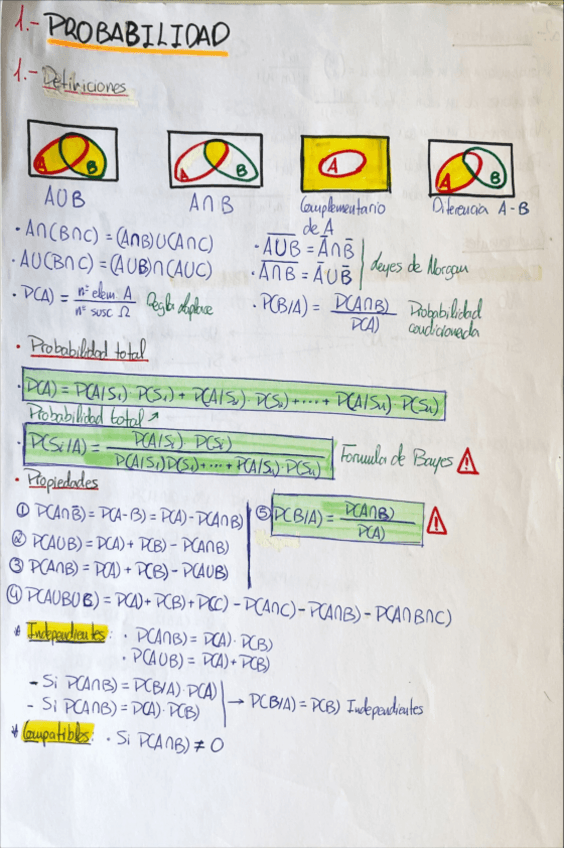 1.- PROBABILIDAD
1.- Definiciones
A B
A B
A
A B
A∪B
A∩B
Complementario de A
Diferencia A-B
· A∩(B∩C) = (A∩B)∪(A∩C)
· A∪(B∩C) = (A∪B)∩(A∪C)
· P(A) = nº elem. A / nº susc Ω Regla laplace
· \overline{A∪B} = Ā∩B̄
· \overline{A∩B} = Ā∪B̄
Leyes de Morgan
· P(B/A) = P(A∩B) / P(A) Probabilidad condicionada
· Probabilidad total
· P(A) = P(A/S₁)·P(S₁) + P(A/S₂)·P(S₂) + ···· + P(A/Sₙ)·P(Sₙ)
Probabilidad total ↗
· P(Sᵢ/A) = P(A/Sᵢ)·P(Sᵢ) / P(A/S₁)P(S₁)+····+P(A/Sₙ)·P(Sₙ) Fórmula de Bayes ⚠
· Propiedades
① P(A∩B̄) = P(A-B) = P(A) - P(A∩B)
② P(A∪B) = P(A) + P(B) - P(A∩B)
③ P(A∩B) = P(A) + P(B) - P(A∪B)
⑤ P(B/A) = P(A∩B) / P(A) ⚠
④ P(A∪B∪B) = P(A) + P(B) + P(C) - P(A∩C) - P(A∩B) - P(A∩B∩C)
* Independientes: · P(A∩B) = P(A)·P(B)
· P(A∪B) = P(A) + P(B)
- Si P(A∩B) = P(B/A)·P(A)
- Si P(A∩B) = P(A)·P(B)
→ P(B/A) = P(B) Independientes
* Compatibles: · Si P(A∩B) ≠ 0